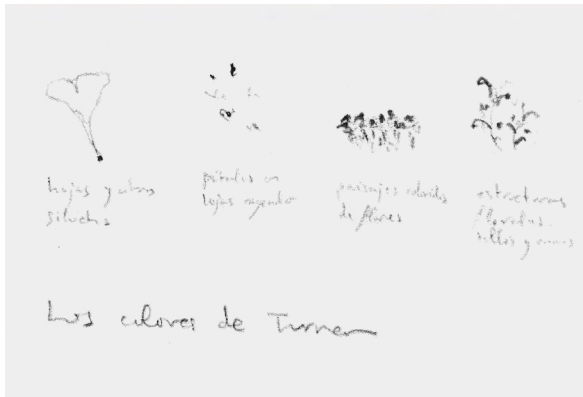 hojas y
silvestres
pétalos en
hojas
paisajes coloridos
de flores
estructuras
florales.
sillas y
Los colores de Turner